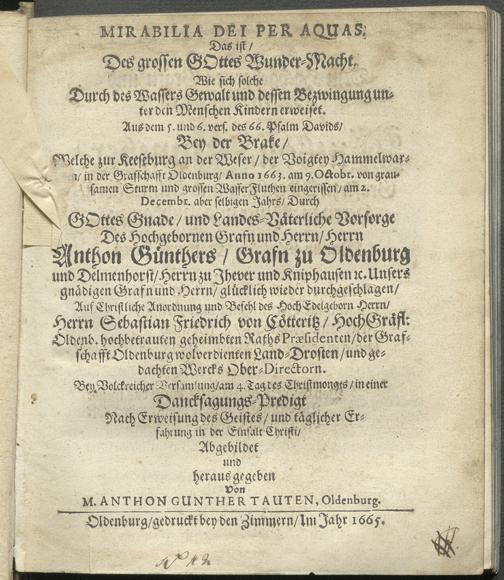 MIRABILIA DEI PER AQUAS.
Das ist/
Des grossen GOttes Wunder-Macht,
Wie sich solche
Durch des Wassers Gewalt und dessen Bezwingung un-
ter den Menschen Kindern erweiset.
Aus dem 5. und 6. vers. des 66. Psalm Davids/
Bey der Brake/
Welche zur Keeseburg an der Weser/ der Voigtey Hammelwar-
in der Grafschafft Oldenburg/ Anno 1663. am 9. Octobr. von grau-
samen Sturm und grossen Wasser Fluthen eingerissen/ am 2.
Decembr. aber selbigen Jahrs/ Durch
GOttes Gnade/ und Landes-Väterliche Vorsorge
Des Hochgebornen Grafn und Herrn/ Herrn
Anthon Günthers/ Grafn zu Oldenburg
und Delmenhorst/ Herrn zu Jhever und Kniphausen ꝛc. Unsers
gnädigen Grafn und Herrn/ glücklich wieder durchgeschlagen/
Auf Christliche Anordnung und Befehl des Hoch Edelgeborn Herrn/
Herrn Sebastian Friedrich von Cötteritz/ HochGräfl:
Oldenb. hochbetrauten geheimbten Raths Præsidenten/ der Graf-
schafft Oldenburg wolverdienten Land-Drosten/ und ge-
dachten Wercks Ober-Directorn.
Bey Volckreicher Versamlung/ am 4. Tag des Christmonats/ in einer
Dancksagungs-Predigt
Nach Erweisung des Geistes/ und täglicher Er-
fahrung in der Einfalt Christi/
Abgebildet
und
heraus gegeben
Von
M. ANTHON GUNTHER TAUTEN, Oldenburg.
Oldenburg/ gedruckt bey den Zimmern/ Im Jahr 1665.